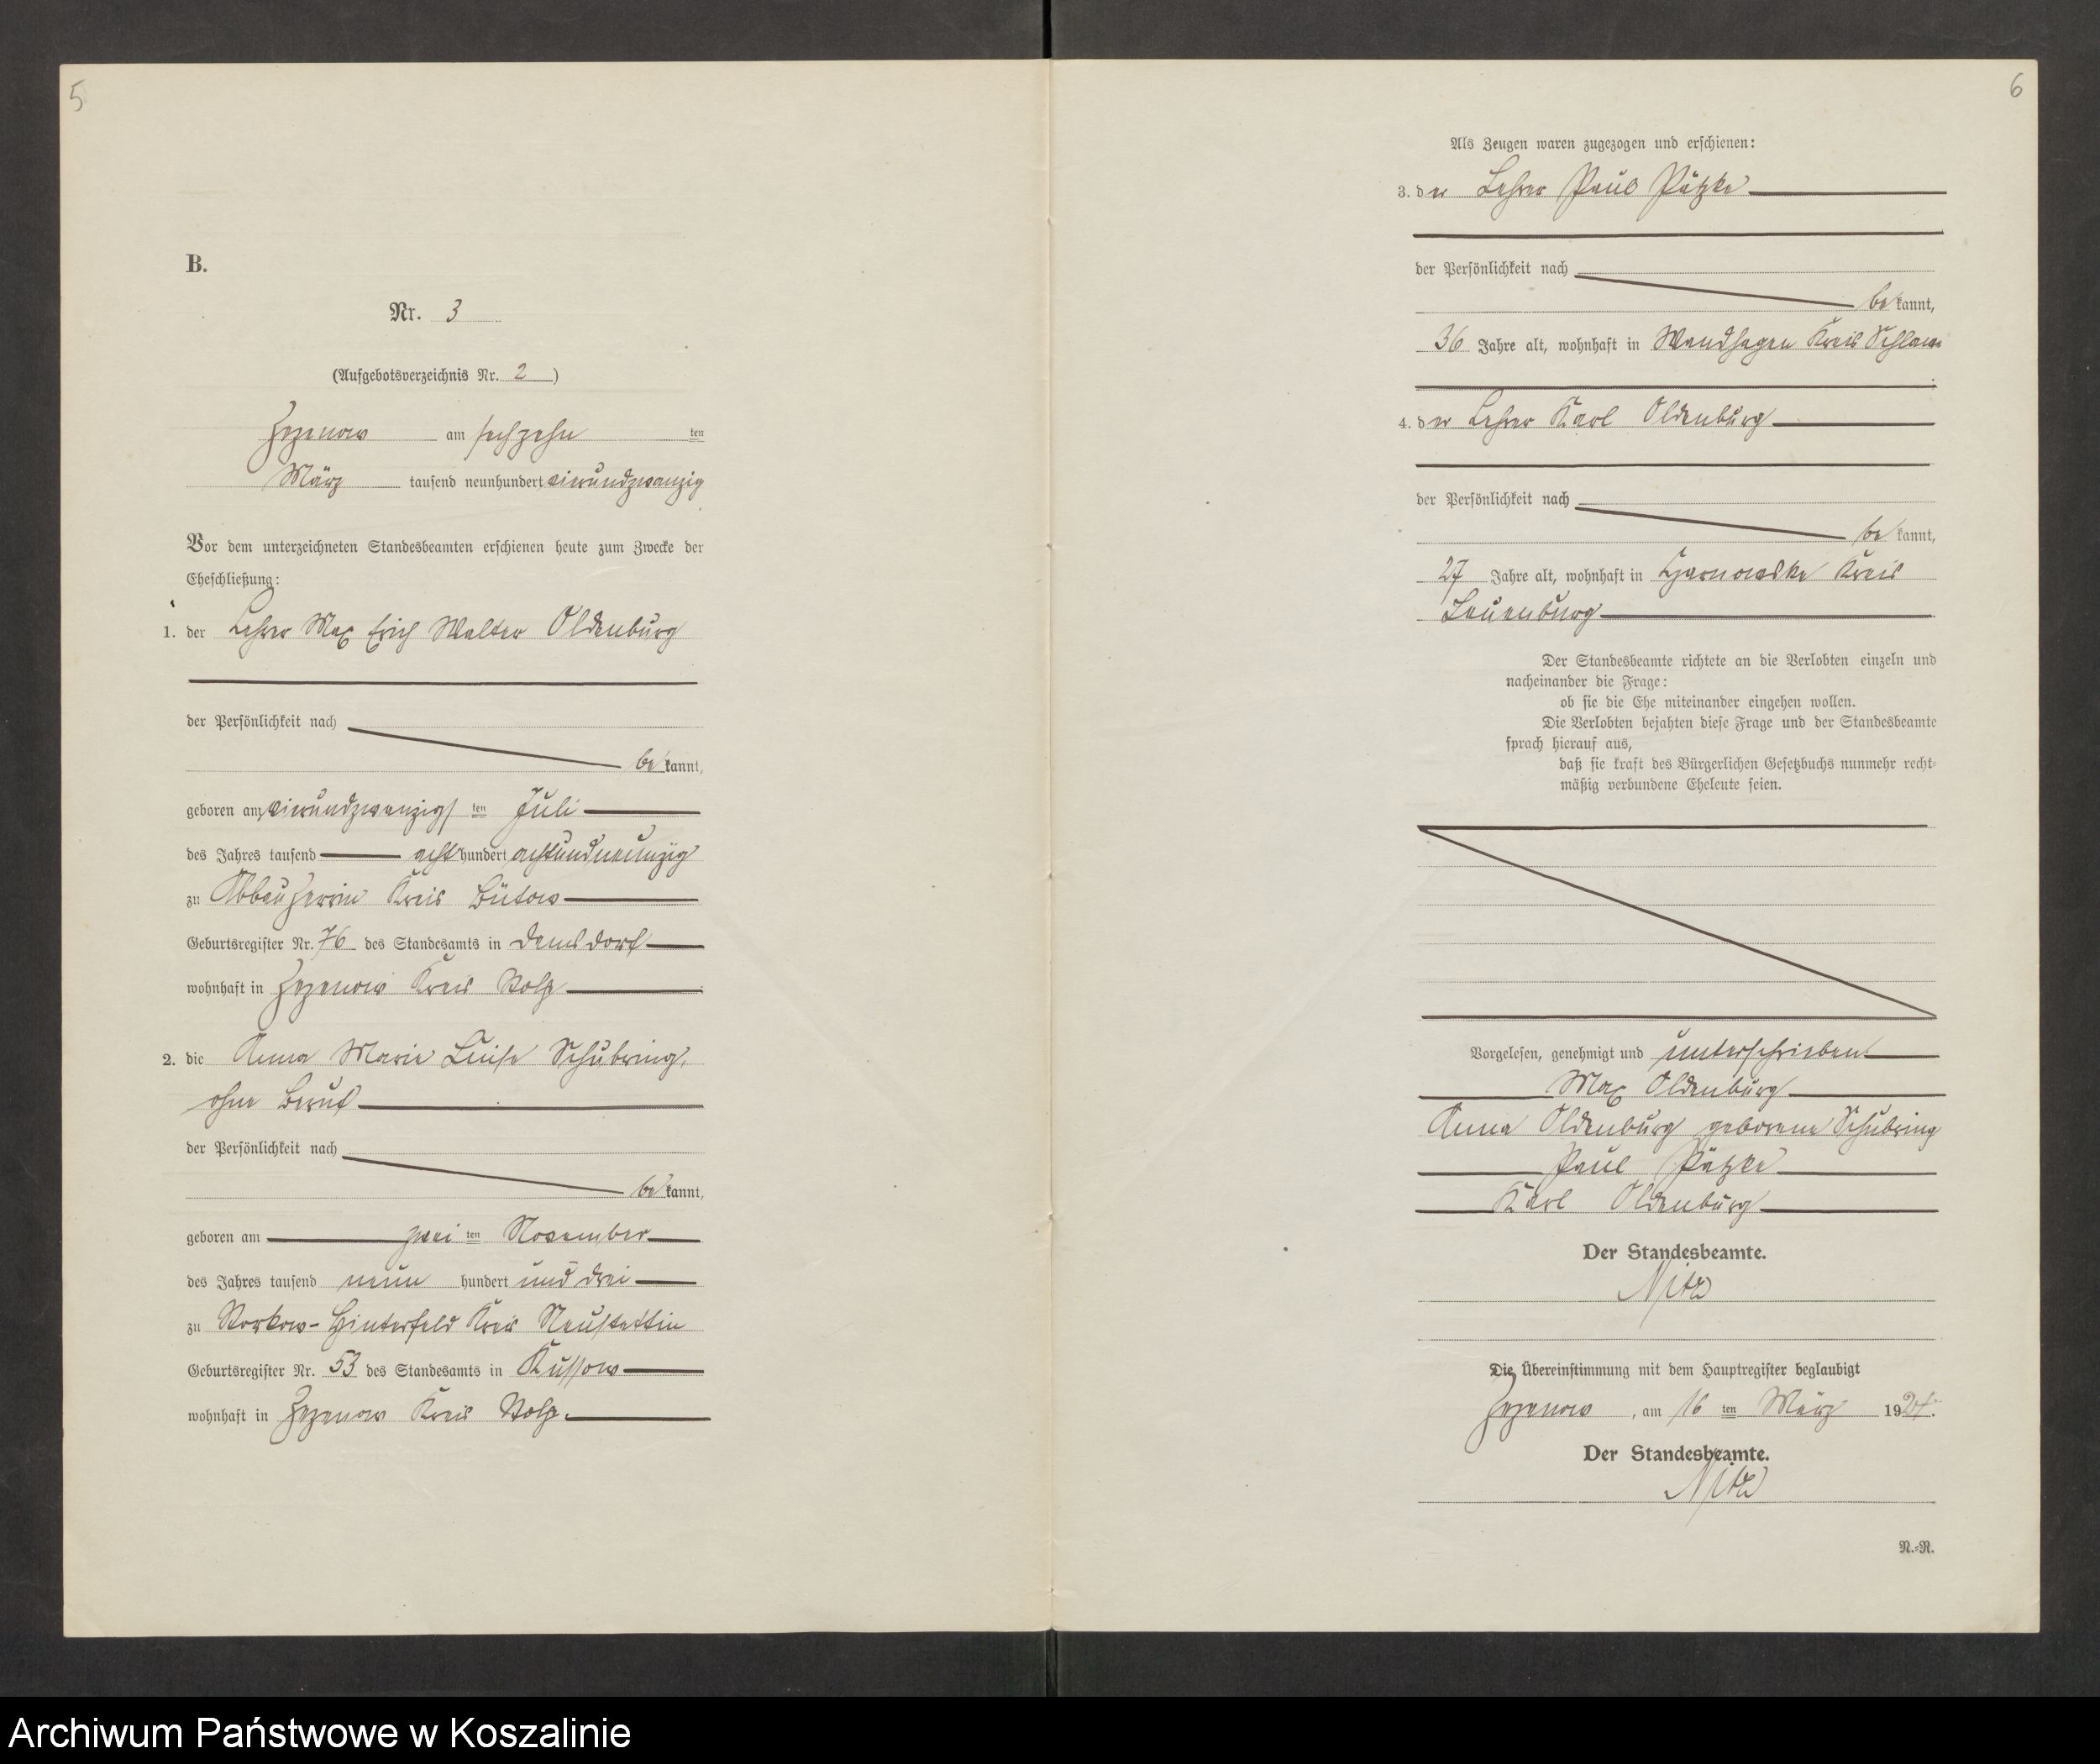 5
B.
Nr. 3
(Aufgebotsverzeichnis Nr. 2)
Zezenow am sechzehn ten
März tausend neunhundert
Vor dem unterzeichneten Standesbeamten erschienen heute zum Zwecke der
Eheschließung:
1. der Lehrer Max Erich Walter Oldenburg
der Persönlichkeit nach
bekannt,
geboren am ten Juli
des Jahres tausend acht hundert achtundneunzig
zu Kreis Bütow
Geburtsregister Nr. 76 des Standesamts in Damsdorf
wohnhaft in Zezenow Kreis Stolp
2. die Anna Marie Luise Schubring,
ohne Beruf
der Persönlichkeit nach
bekannt,
geboren am zwei ten November
des Jahres tausend neun hundert und drei
zu Storkow-Hinterfeld Kreis Neustettin
Geburtsregister Nr. 53 des Standesamts in Kussow
wohnhaft in Zezenow Kreis Stolp.
6
Als Zeugen waren zugezogen und erschienen:
3. der Lehrer Paul Pätzke
der Persönlichkeit nach
bekannt,
36 Jahre alt, wohnhaft in Wendhagen Kreis Schlawe
4. der Lehrer Karl Oldenburg
der Persönlichkeit nach
bekannt,
27 Jahre alt, wohnhaft in Kreis
Lauenburg
Der Standesbeamte richtete an die Verlobten einzeln und
nacheinander die Frage:
ob sie die Ehe miteinander eingehen wollen.
Die Verlobten bejahten diese Frage und der Standesbeamte
sprach hierauf aus,
daß sie kraft des Bürgerlichen Gesetzbuchs nunmehr recht-
mäßig verbundene Eheleute seien.
Vorgelesen, genehmigt und unterschrieben
Max Oldenburg
Anna Oldenburg geborene Schubring
Paul Pätzke
Karl Oldenburg
Der Standesbeamte.
Nitz
Die Übereinstimmung mit dem Hauptregister beglaubigt
Zezenow, am 16 ten März 1924.
Der Standesbeamte.
Nitz
N.-R.
Archiwum Państwowe w Koszalinie